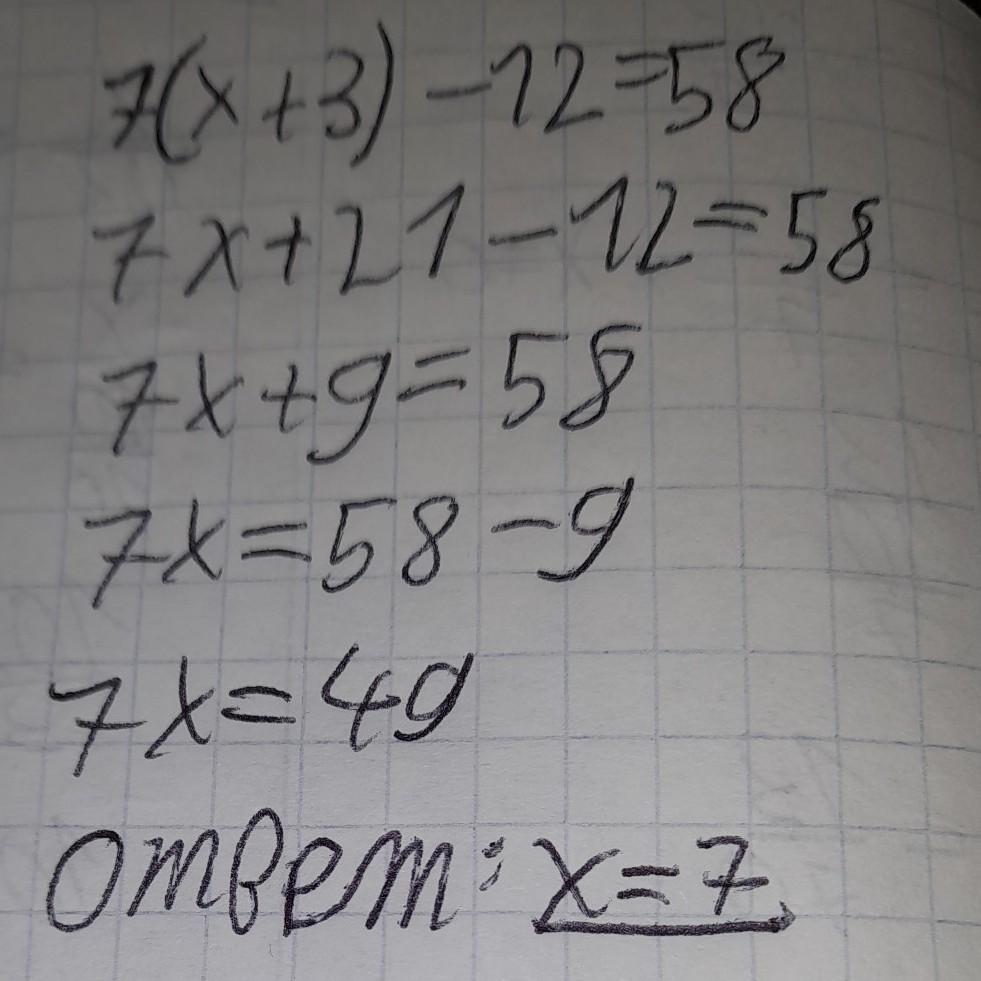 7(x+3)-12=58
7x+21-12=58
7x+9=58
7x=58-9
7x=49
Ответ: x=7